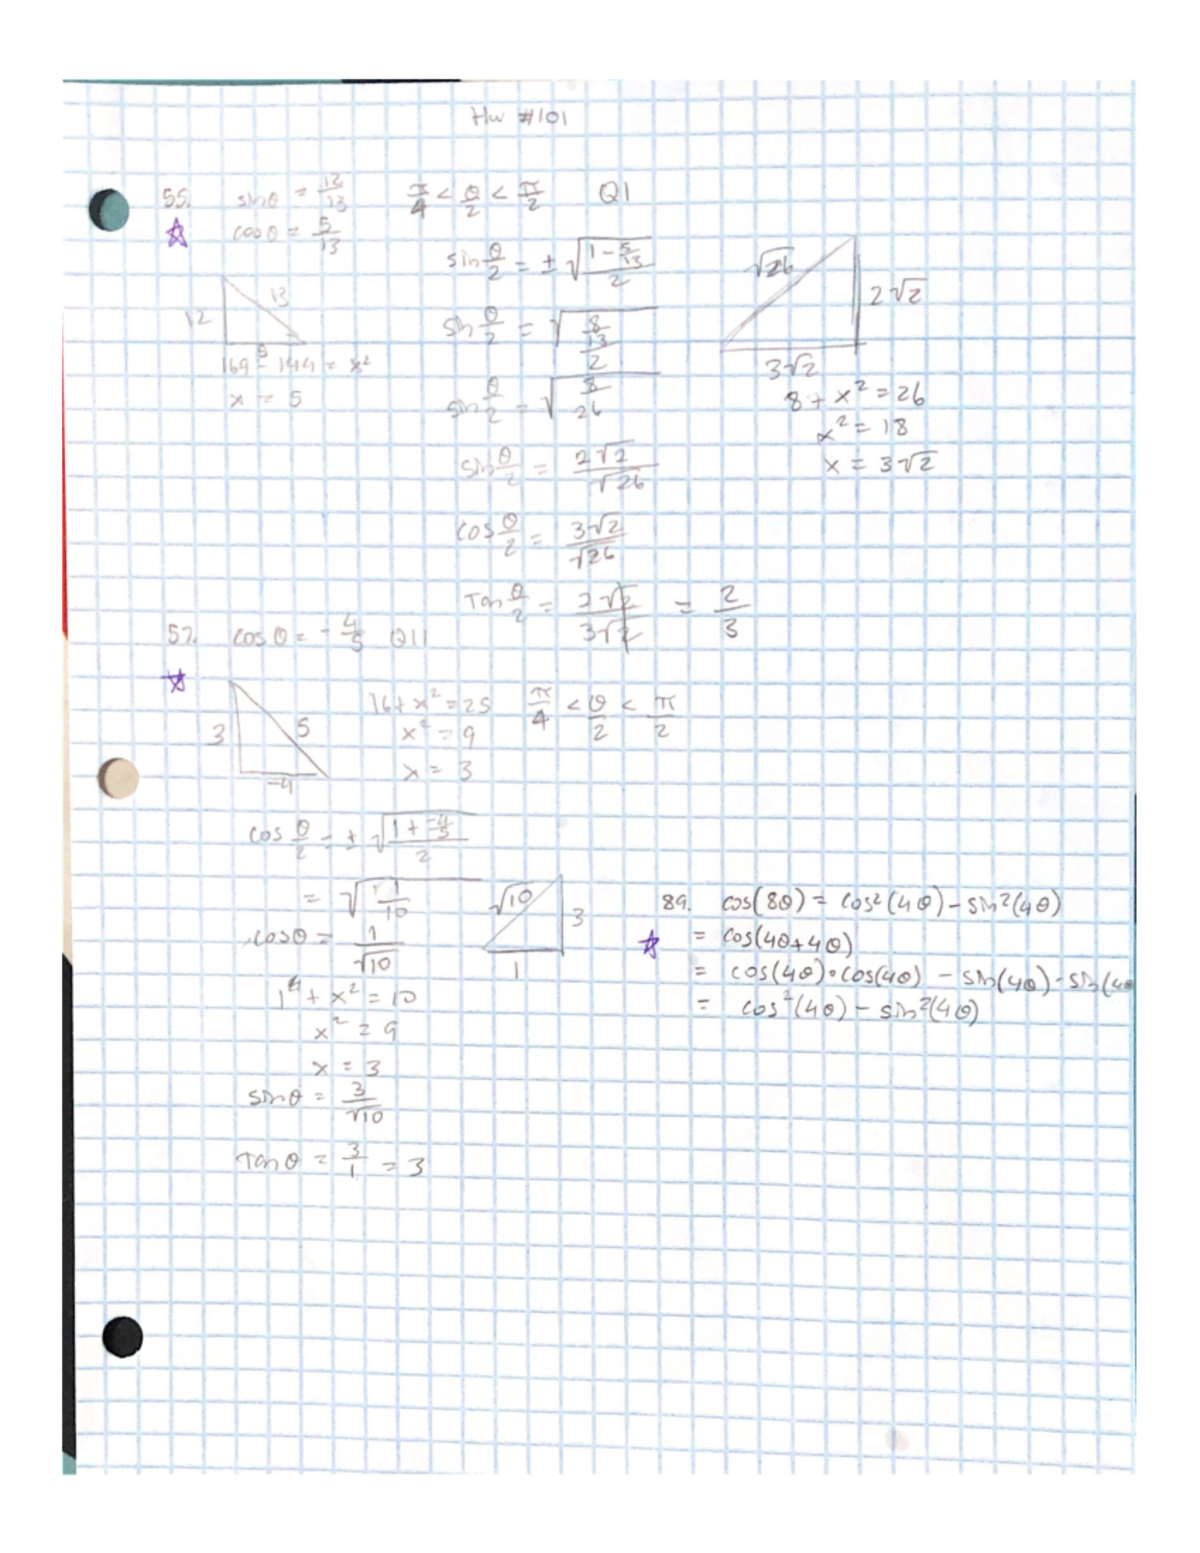 Hw #101
55. sinθ = 12/13 π/4 < θ/2 < π/2 Q1
cosθ = 5/13
12 13 5
169 - 144 = x²
x = 5
sin θ/2 = ± √((1 - 5/13)/2)
sin θ/2 = √((8/13)/2)
sin θ/2 = √(8/26)
sin θ/2 = 2√2/√26
cos θ/2 = 3√2/√26
Tan θ/2 = 2√2/3√2 = 2/3
√26 2√2
3√2
8 + x² = 26
x² = 18
x = 3√2
57. cos θ = -4/5 Q11
3 5 -4
16 + x² = 25 π/4 < θ/2 < π/2
x² = 9
x = 3
cos θ/2 = ± √((1 + -4/5)/2)
= √(1/10)
cosθ = 1/√10
√10 3
1
1² + x² = 10
x² = 9
x = 3
sinθ = 3/√10
Tan θ = 3/1 = 3
89. cos(8θ) = cos²(4θ) - sin²(4θ)
= cos(4θ+4θ)
= cos(4θ)•cos(4θ) - sin(4θ)·sin(4θ
= cos²(4θ) - sin²(4θ)